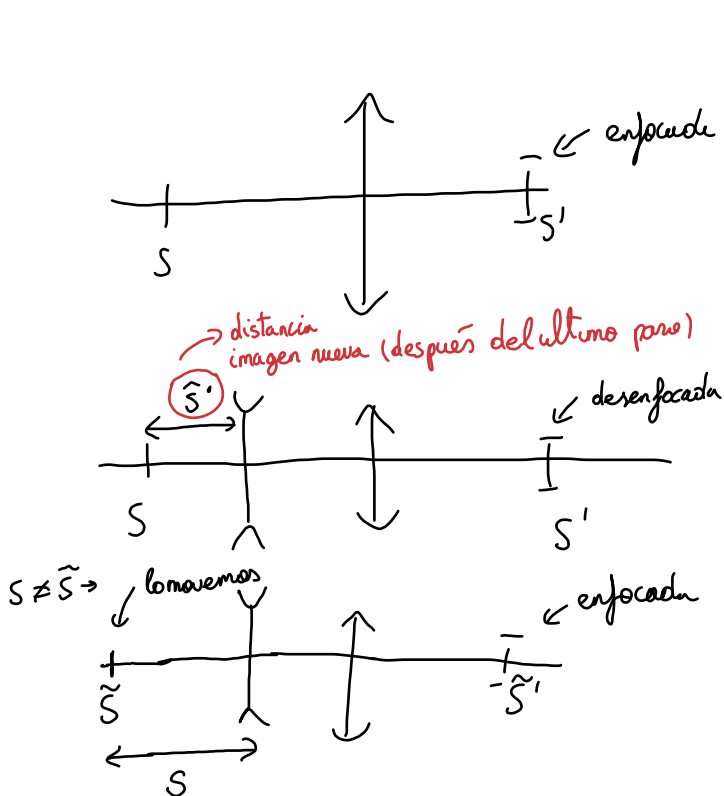 enfocada
S
S'
distancia
imagen nueva (después del ultimo paso)
ŝ'
desenfocada
S
S'
S ≠ s̃ →
lo movemos
enfocada
s̃
- s̃'
S